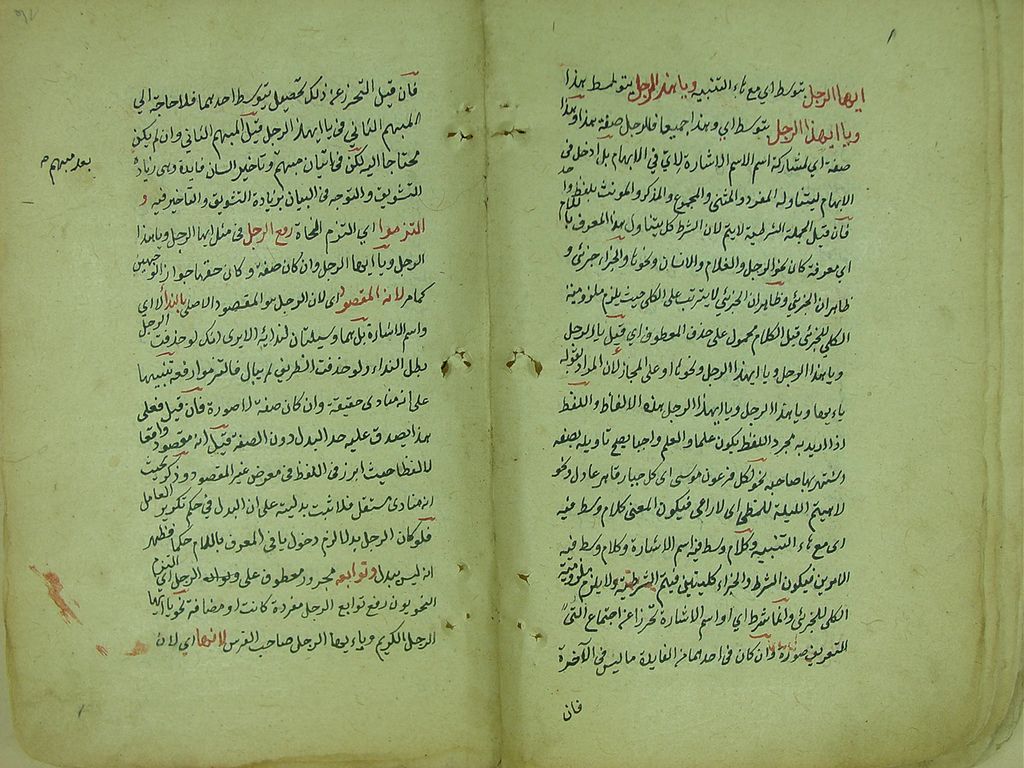 ايها الرجل بتوسط اي مع هاء التنبيه ويا هذا الرجل بتوسط هذا
ويا ايهذا الرجل بتوسط اي وهذا جميعا فالرجل صفة هذا وهذا
صفة اي لمشاركة اسم الاشارة لاي في الابهام بل ادخل في
الابهام ليتناوله المفرد والمثنى والمجموع والمذكر والمونث بلفظ واحد
فان قيل الجملة الشرطية لا يتم لان الشرط كل يتناول هذا المعرف باللام
اي معرفة كان نحو الرجل والغلام والانسان ونحوها والجزاء جزئي و
ظاهر ان الجزئي لا يترتب على الكلي حيث يلزم ملزومية
الكلي للجزئي قيل الكلام محمول على حذف المعطوف اي قيل يا ايها الرجل
ويا هذا الرجل ويا ايهذا الرجل ونحوها او على المجاز لان المراد بقوله
يا ايها ويا هذا الرجل ويا ايهذا الرجل هذه الالفاظ واللفظ
اذا اريد به مجرد اللفظ يكون علما والعلم واجبا يصح تاويله بصفة
اشتهر بها صاحبه نحو لكل فرعون موسى اي كل جبار قاهر عادل ونحو
لا هيثم الليلة للمطي اي لا راعي فيكون المعنى كلام وسط فيه
اي مع هاء التنبيه وكلام وسط فيه اسم الاشارة وكلام وسط فيه
الامرين فيكون الشرط والجزاء كليتان فيتم الشرطية ولا يلزم ملزومية
الكلي للجزئي وانما شرط اي او اسم الاشارة تحرزا عن اجتماع التي
التعريف صورة وان كان في احدهما من الفايدة ما ليس في الآخرة
فان
فان قيل التحرز عن ذلك تحصيل بتوسط احدهما فلا حاجة الى
المبهم الثاني في يا ايهذا الرجل قيل المبهم الثاني وان لم يكن
محتاجا اليه لكن في اتيان مبهم وتاخير البيان فايدة وهي زيادة
بعد مبهم صح
للتشويق والتوجه في البيان بزيادة التشويق والتاخير فيه و
التزموا اي التزم النحاة رفع الرجل في مثل ايها الرجل ويا هذا
الرجل ويا ايها الرجل وان كان صفة وكان حقها جواز الوجهين
كما مر لانه المقصود اي لان الرجل هو المقصود الاصلي بالنداء لا اي
واسم الاشارة بل هما وسيلتان لندائه الا يرى انك لو حذفت الرجل
بطل النداء ولو حذفت الطرفي لم يبال فالتزموا رفعه تنبيها
على انه منادى حقيقة وان كان صفة صورة فان قيل فعلى
هذا يصدق عليه حد البدل دون الصفة قيل انه مقصود واقعا
لا لفظا حيث ابرز في اللفظ في معرض غير المقصود وذكر بحيث
انه منادى مستقل فلا تثبت بدليته على ان البدل في حكم تكرير العامل
فلو كان الرجل بدلا لزم دخول يا في المعرف باللام حكما فظهر
انه ليس ببدل وتوابعه مجرور معطوف على الرجل اي التزم
النحويون رفع توابع الرجل مفردة كانت او مضافة نحو يا ايها
الرجل الكريم ويا ايها الرجل صاحب الفرس لانها اي لان